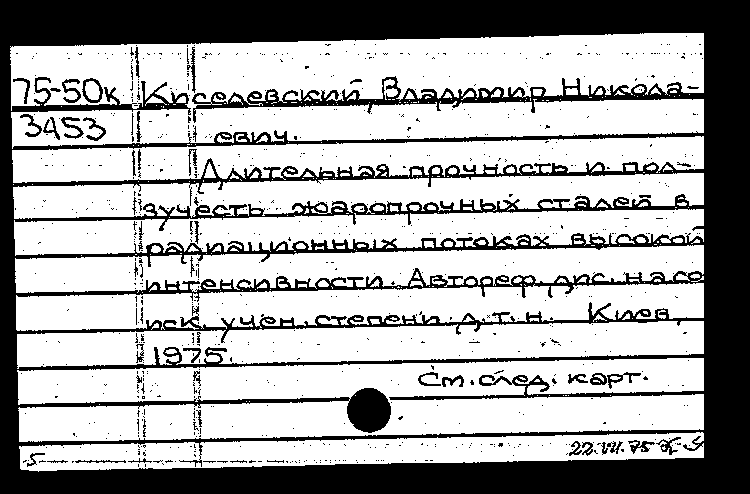 75-50к Киселевский, Владимир Никола-
3453 евич.
Длительная прочность и пол-
зучесть жаропрочных сталей в
радиационных потоках высокой
интенсивности. Автореф. дис. на со
иск. учен. степени д.т.н. Киев,
1975.
См. след. карт.
5 22.VII.75